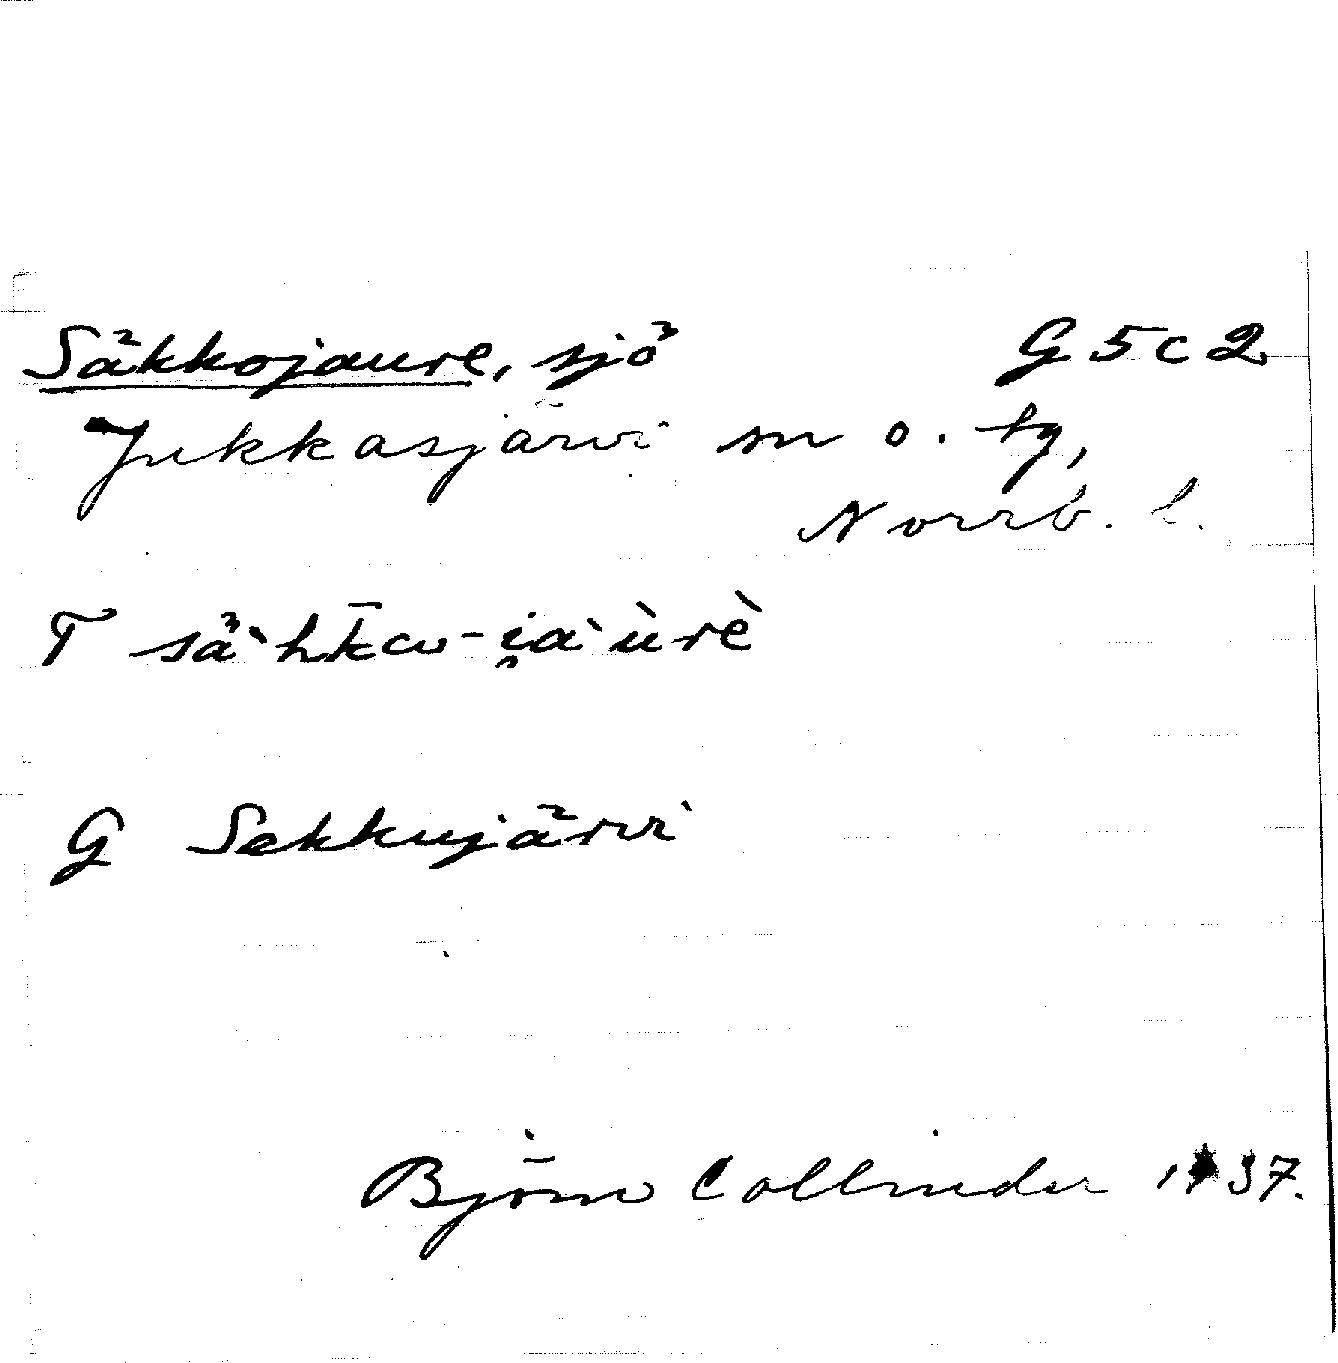 Säkkojaure, sjö G5c2
Jukkasjärvi sn o. tg,
Norrb. l.
T sä`hk̄ω-i̯a`ùrè
G Sekkujärvi
Björn Collinder 1937.